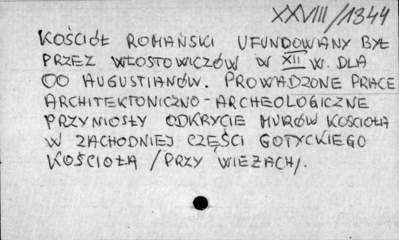 XXVIII/1844
KOŚCIÓŁ ROMAŃSKI UFUNDOWANY BYŁ
PRZEZ WŁOSTOWICZÓW W XII W. DLA
OO AUGUSTIANÓW. PROWADZONE PRACE
ARCHITEKTONICZNO-ARCHEOLOGICZNE
PRZYNIOSŁY ODKRYCIE MURÓW KOSCIOŁA
W ZACHODNIEJ CZĘŚCI GOTYCKIEGO
KOŚCIOŁA /PRZY WIEŻACH/.